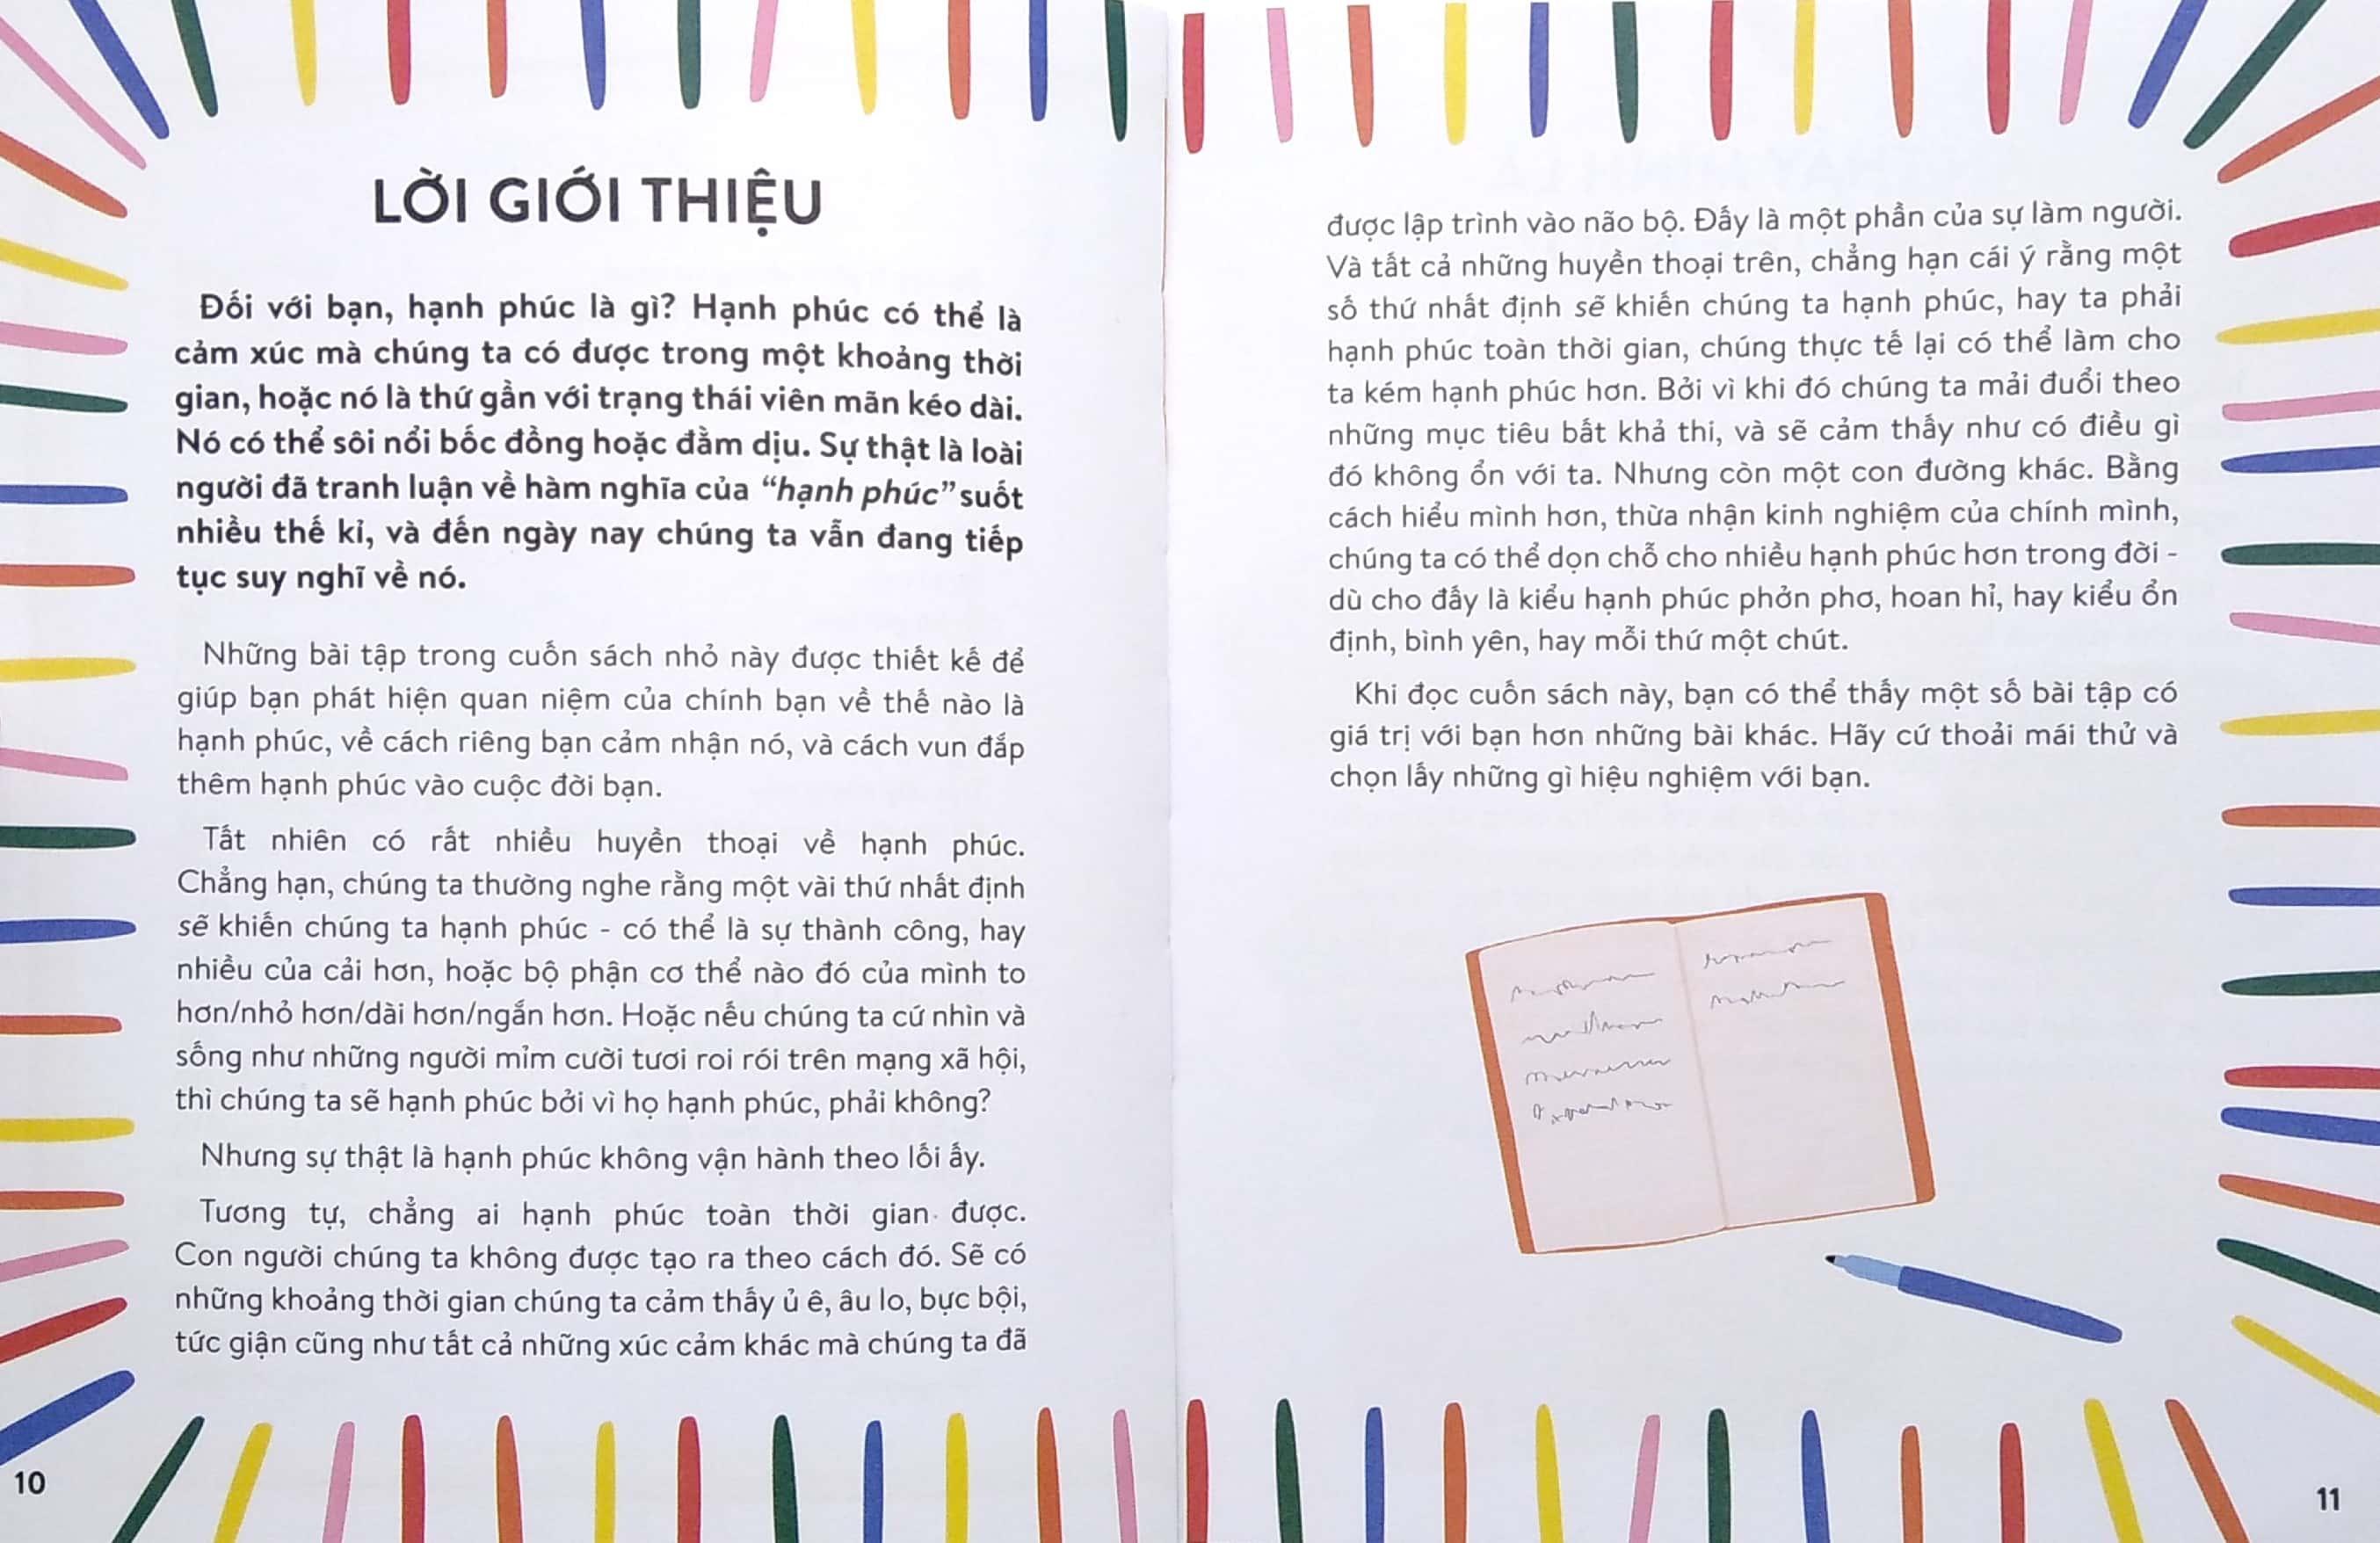 LỜI GIỚI THIỆU
Đối với bạn, hạnh phúc là gì? Hạnh phúc có thể là
cảm xúc mà chúng ta có được trong một khoảng thời
gian, hoặc nó là thứ gần với trạng thái viên mãn kéo dài.
Nó có thể sôi nổi bốc đồng hoặc đằm dịu. Sự thật là loài
người đã tranh luận về hàm nghĩa của “hạnh phúc” suốt
nhiều thế kỉ, và đến ngày nay chúng ta vẫn đang tiếp
tục suy nghĩ về nó.
Những bài tập trong cuốn sách nhỏ này được thiết kế để
giúp bạn phát hiện quan niệm của chính bạn về thế nào là
hạnh phúc, về cách riêng bạn cảm nhận nó, và cách vun đắp
thêm hạnh phúc vào cuộc đời bạn.
Tất nhiên có rất nhiều huyền thoại về hạnh phúc.
Chẳng hạn, chúng ta thường nghe rằng một vài thứ nhất định
sẽ khiến chúng ta hạnh phúc - có thể là sự thành công, hay
nhiều của cải hơn, hoặc bộ phận cơ thể nào đó của mình to
hơn/nhỏ hơn/dài hơn/ngắn hơn. Hoặc nếu chúng ta cứ nhìn và
sống như những người mỉm cười tươi roi rói trên mạng xã hội,
thì chúng ta sẽ hạnh phúc bởi vì họ hạnh phúc, phải không?
Nhưng sự thật là hạnh phúc không vận hành theo lối ấy.
Tương tự, chẳng ai hạnh phúc toàn thời gian được.
Con người chúng ta không được tạo ra theo cách đó. Sẽ có
những khoảng thời gian chúng ta cảm thấy ủ ê, âu lo, bực bội,
tức giận cũng như tất cả những xúc cảm khác mà chúng ta đã
10
được lập trình vào não bộ. Đấy là một phần của sự làm người.
Và tất cả những huyền thoại trên, chẳng hạn cái ý rằng một
số thứ nhất định sẽ khiến chúng ta hạnh phúc, hay ta phải
hạnh phúc toàn thời gian, chúng thực tế lại có thể làm cho
ta kém hạnh phúc hơn. Bởi vì khi đó chúng ta mải đuổi theo
những mục tiêu bất khả thi, và sẽ cảm thấy như có điều gì
đó không ổn với ta. Nhưng còn một con đường khác. Bằng
cách hiểu mình hơn, thừa nhận kinh nghiệm của chính mình,
chúng ta có thể dọn chỗ cho nhiều hạnh phúc hơn trong đời -
dù cho đấy là kiểu hạnh phúc phởn phơ, hoan hỉ, hay kiểu ổn
định, bình yên, hay mỗi thứ một chút.
Khi đọc cuốn sách này, bạn có thể thấy một số bài tập có
giá trị với bạn hơn những bài khác. Hãy cứ thoải mái thử và
chọn lấy những gì hiệu nghiệm với bạn.
11